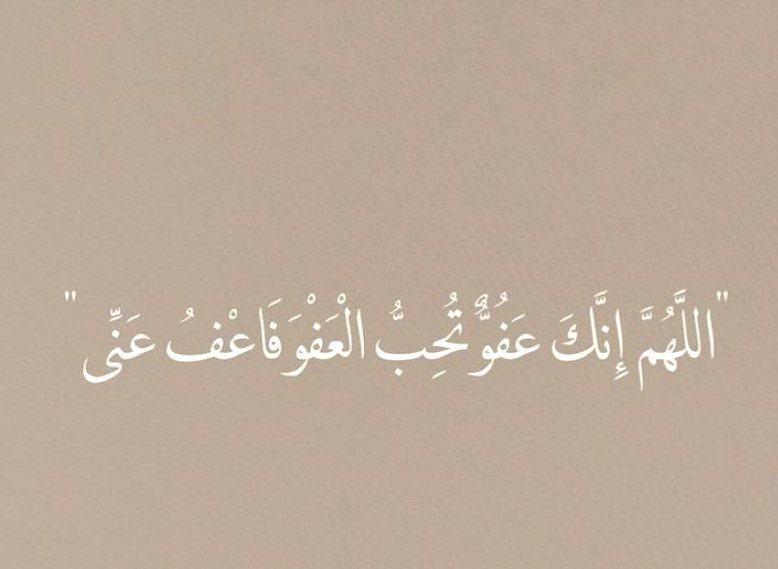 "اللَّهُمَّ إِنَّكَ عَفُوٌّ تُحِبُّ الْعَفْوَ فَاعْفُ عَنِّى"